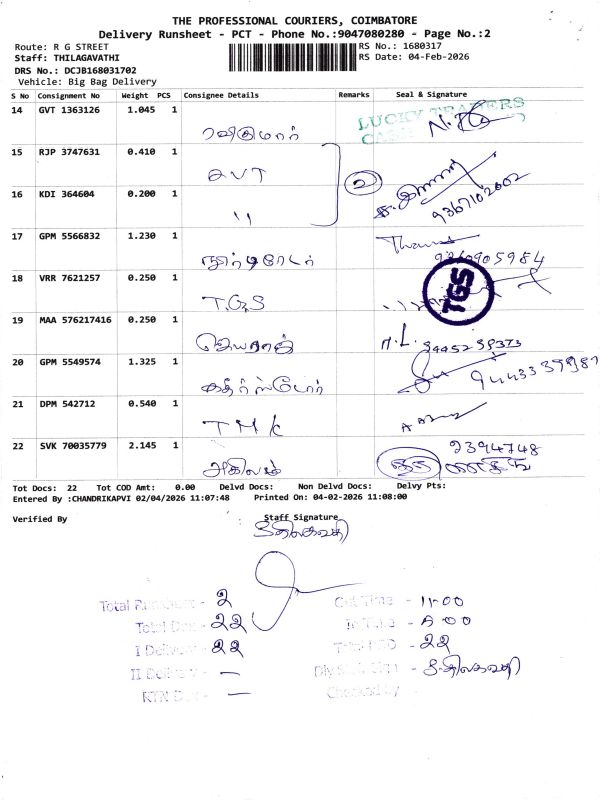 THE PROFESSIONAL COURIERS, COIMBATORE
Delivery Runsheet - PCT - Phone No.:9047080280 - Page No.:2
Route: R G STREET
RS No.: 1680317
Staff: THILAGAVATHI
RS Date: 04-Feb-2026
DRS No.: DCJB168031702
Vehicle: Big Bag Delivery
S No Consignment No Weight PCS Consignee Details Remarks Seal & Signature
14 GVT 1363126 1.045 1 ரவிகுமார் LUCKY TRADERS
15 RJP 3747631 0.410 1 AVT
16 KDI 364604 0.200 1 " 2 9367102602
17 GPM 5566832 1.230 1
18 VRR 7621257 0.250 1 T.G.S TGS
19 MAA 576217416 0.250 1 ஜெயராஜ்
20 GPM 5549574 1.325 1 கதிர் ஸ்டோர்
21 DPM 542712 0.540 1 TMK
22 SVK 70035779 2.145 1 அகிலம் 2394748
Tot Docs: 22 Tot COD Amt: 0.00 Delvd Docs: Non Delvd Docs: Delvy Pts:
Entered By :CHANDRIKAPVI 02/04/2026 11:07:48 Printed On: 04-02-2026 11:08:00
Verified By Staff Signature
S.திலகவதி
2 11-00
22
I Delivery - 22 22
II Delivery - — S.திலகவதி
—
Checked by